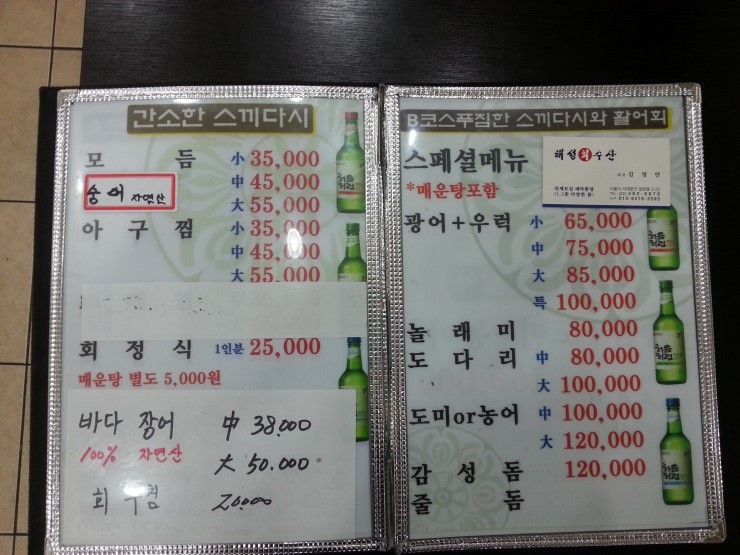 간소한 스끼다시
모 듬 小 35,000
中 45,000
숭어 자연산
大 55,000
아 구 찜 小 35,000
中 45,000
大 55,000
회 정 식 1인분 25,000
매운탕 별도 5,000원
바다 장어 中 38.000
100% 자연산 大 50.000
회 무침 20.000
B코스푸짐한 스끼다시와 활어회
스페셜메뉴
*매운탕포함
해성 회 수산
광어+우럭 小 65,000
中 75,000
大 85,000
特 100,000
놀 래 미 80,000
도 다 리 中 80,000
大 100,000
도미or농어 中 100,000
大 120,000
감 성 돔 120,000
줄 돔
처음처럼
처음처럼
처음처럼